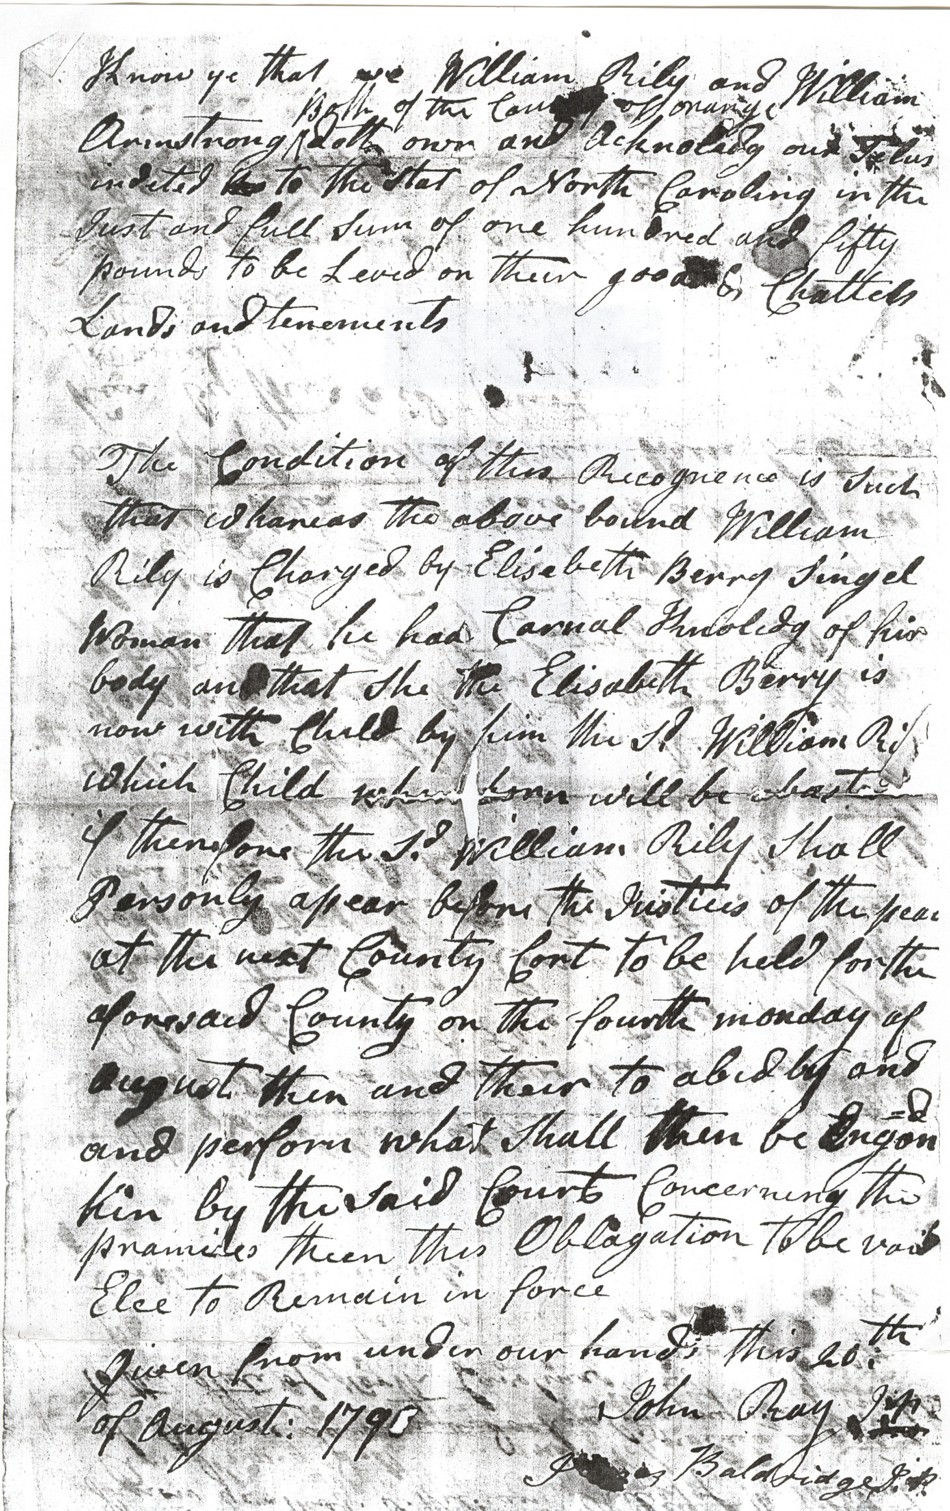 Know ye that we William Rily and William
Both of the County of orange
Armstrong doth own and Acknoledg our Selvs
indeted to the Stat of North Carolina in the
Just and full Sum of one hundred and fifty
pounds to be Leved on their goods & Chattels
Lands and tenements
The Condition of this Recognence is Such
that whareas the above bound William
Rily is Charged by Elisabeth Berry Singel
Woman that he had Carnal Knoledg of hir
body and that She the Elisabeth Berry is
now with Child by him the Sd William Ri
which Child when born will be abast
if therefore the Sd William Rily Shall
Personly apear before the Justices of the peac
at the next County Cort to be held for the
aforesaid County on the fourth monday of
August then and their to abid by and
and perform what Shall then be Engoynd
hin by the said Court Concerning the
pramises theen this Oblagation to be void
Elce to Remain in force
Given from under our hands this 20th
of August: 1793
John Ray J.P.
Baldridge J.P.